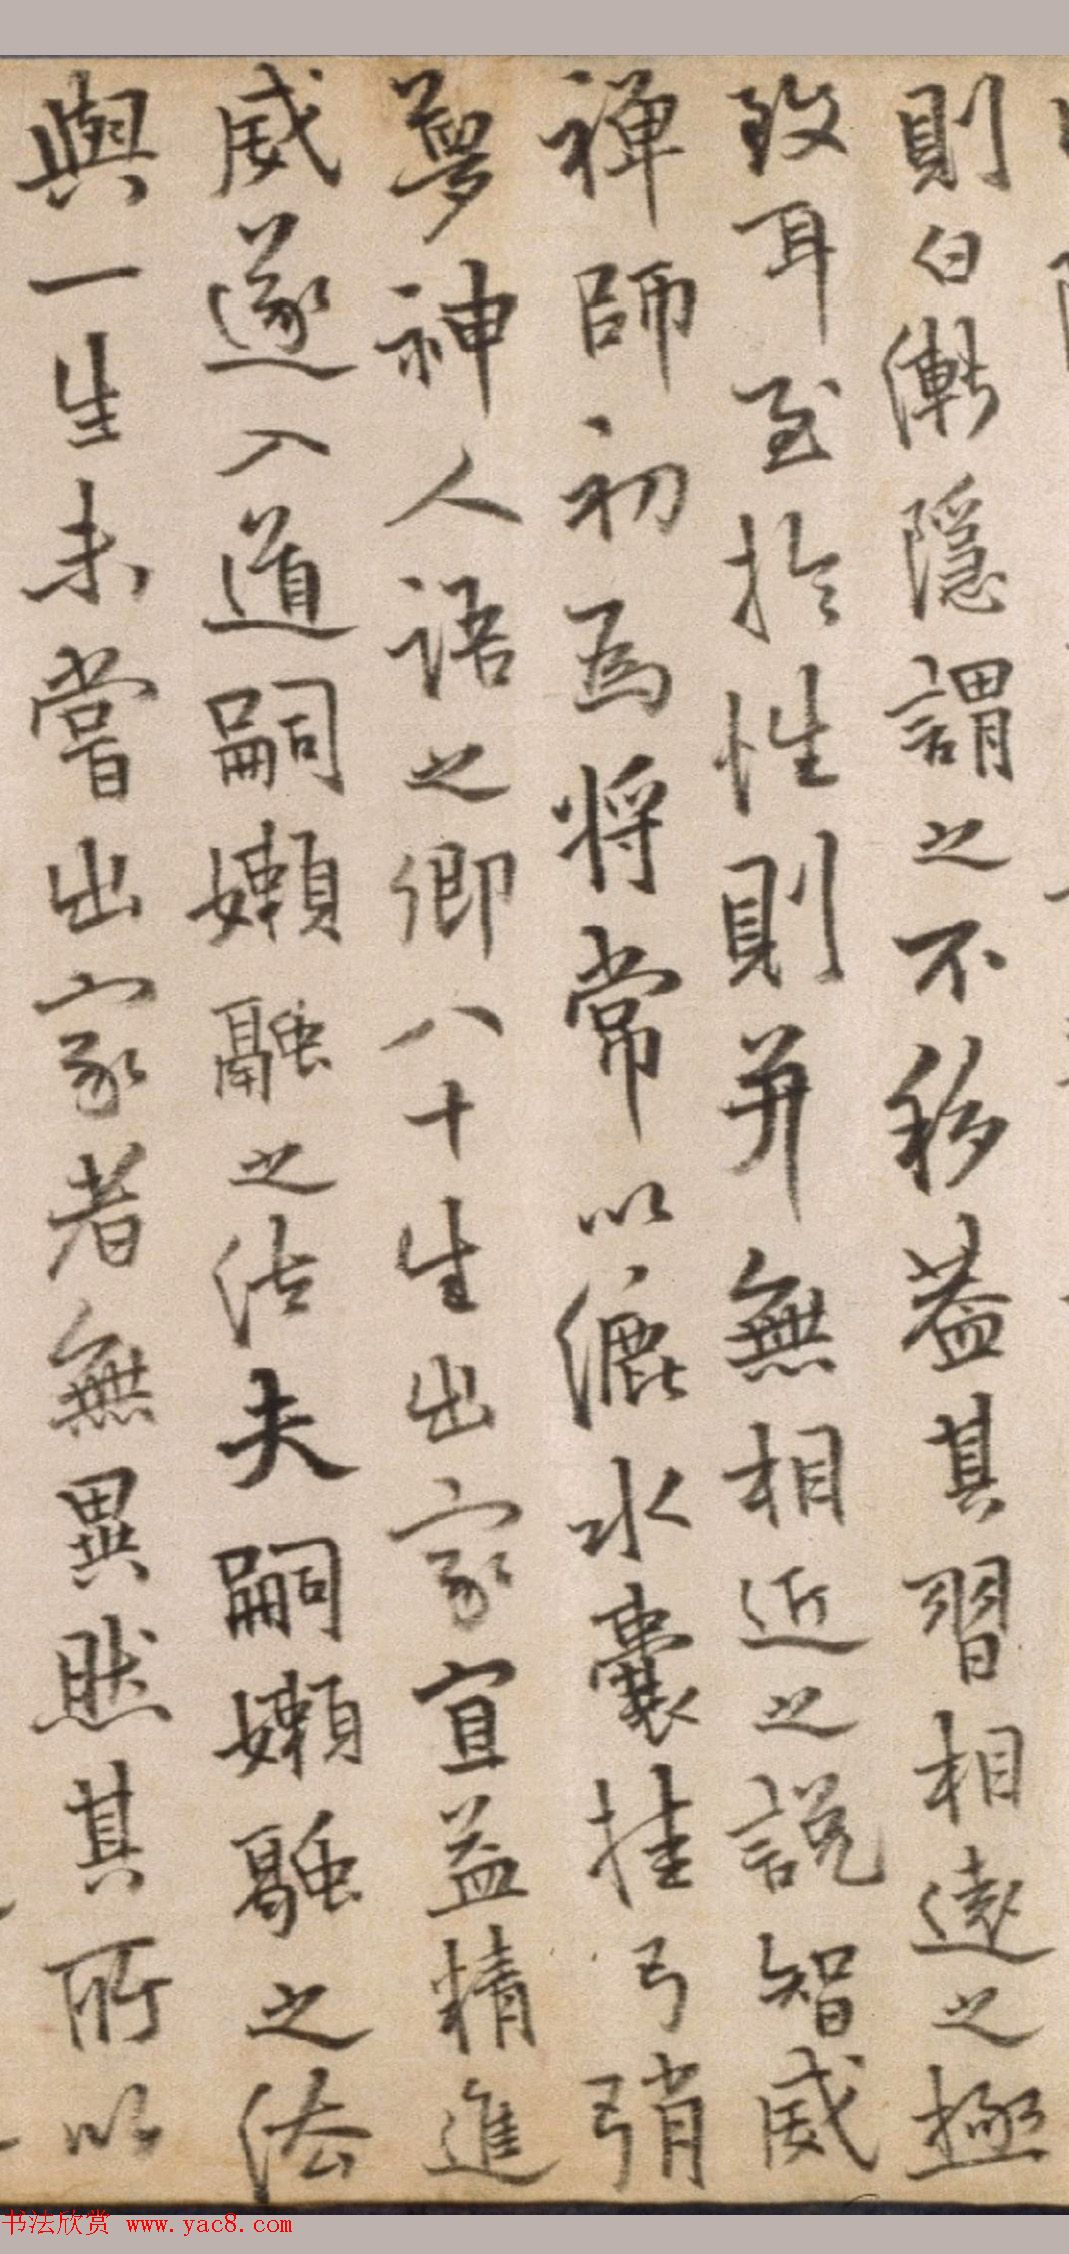 則白漸隱謂之不移蓋其習相遠之極
致耳至於性則并無相近之說智威
禪師初為將常以漉水囊挂弓弰
夢神人語之卿八十生出家宜益精進
威遂入道嗣嬾融之法夫嗣嬾融之法
與一生未嘗出家者無異然其所以
书法欣赏 www.yac8.com